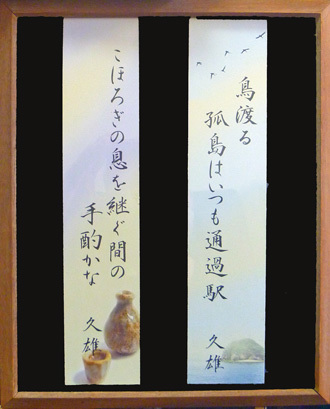 鳥渡る
孤島はいつも通過駅
久雄
こほろぎの息を継ぐ間の
手酌かな
久雄